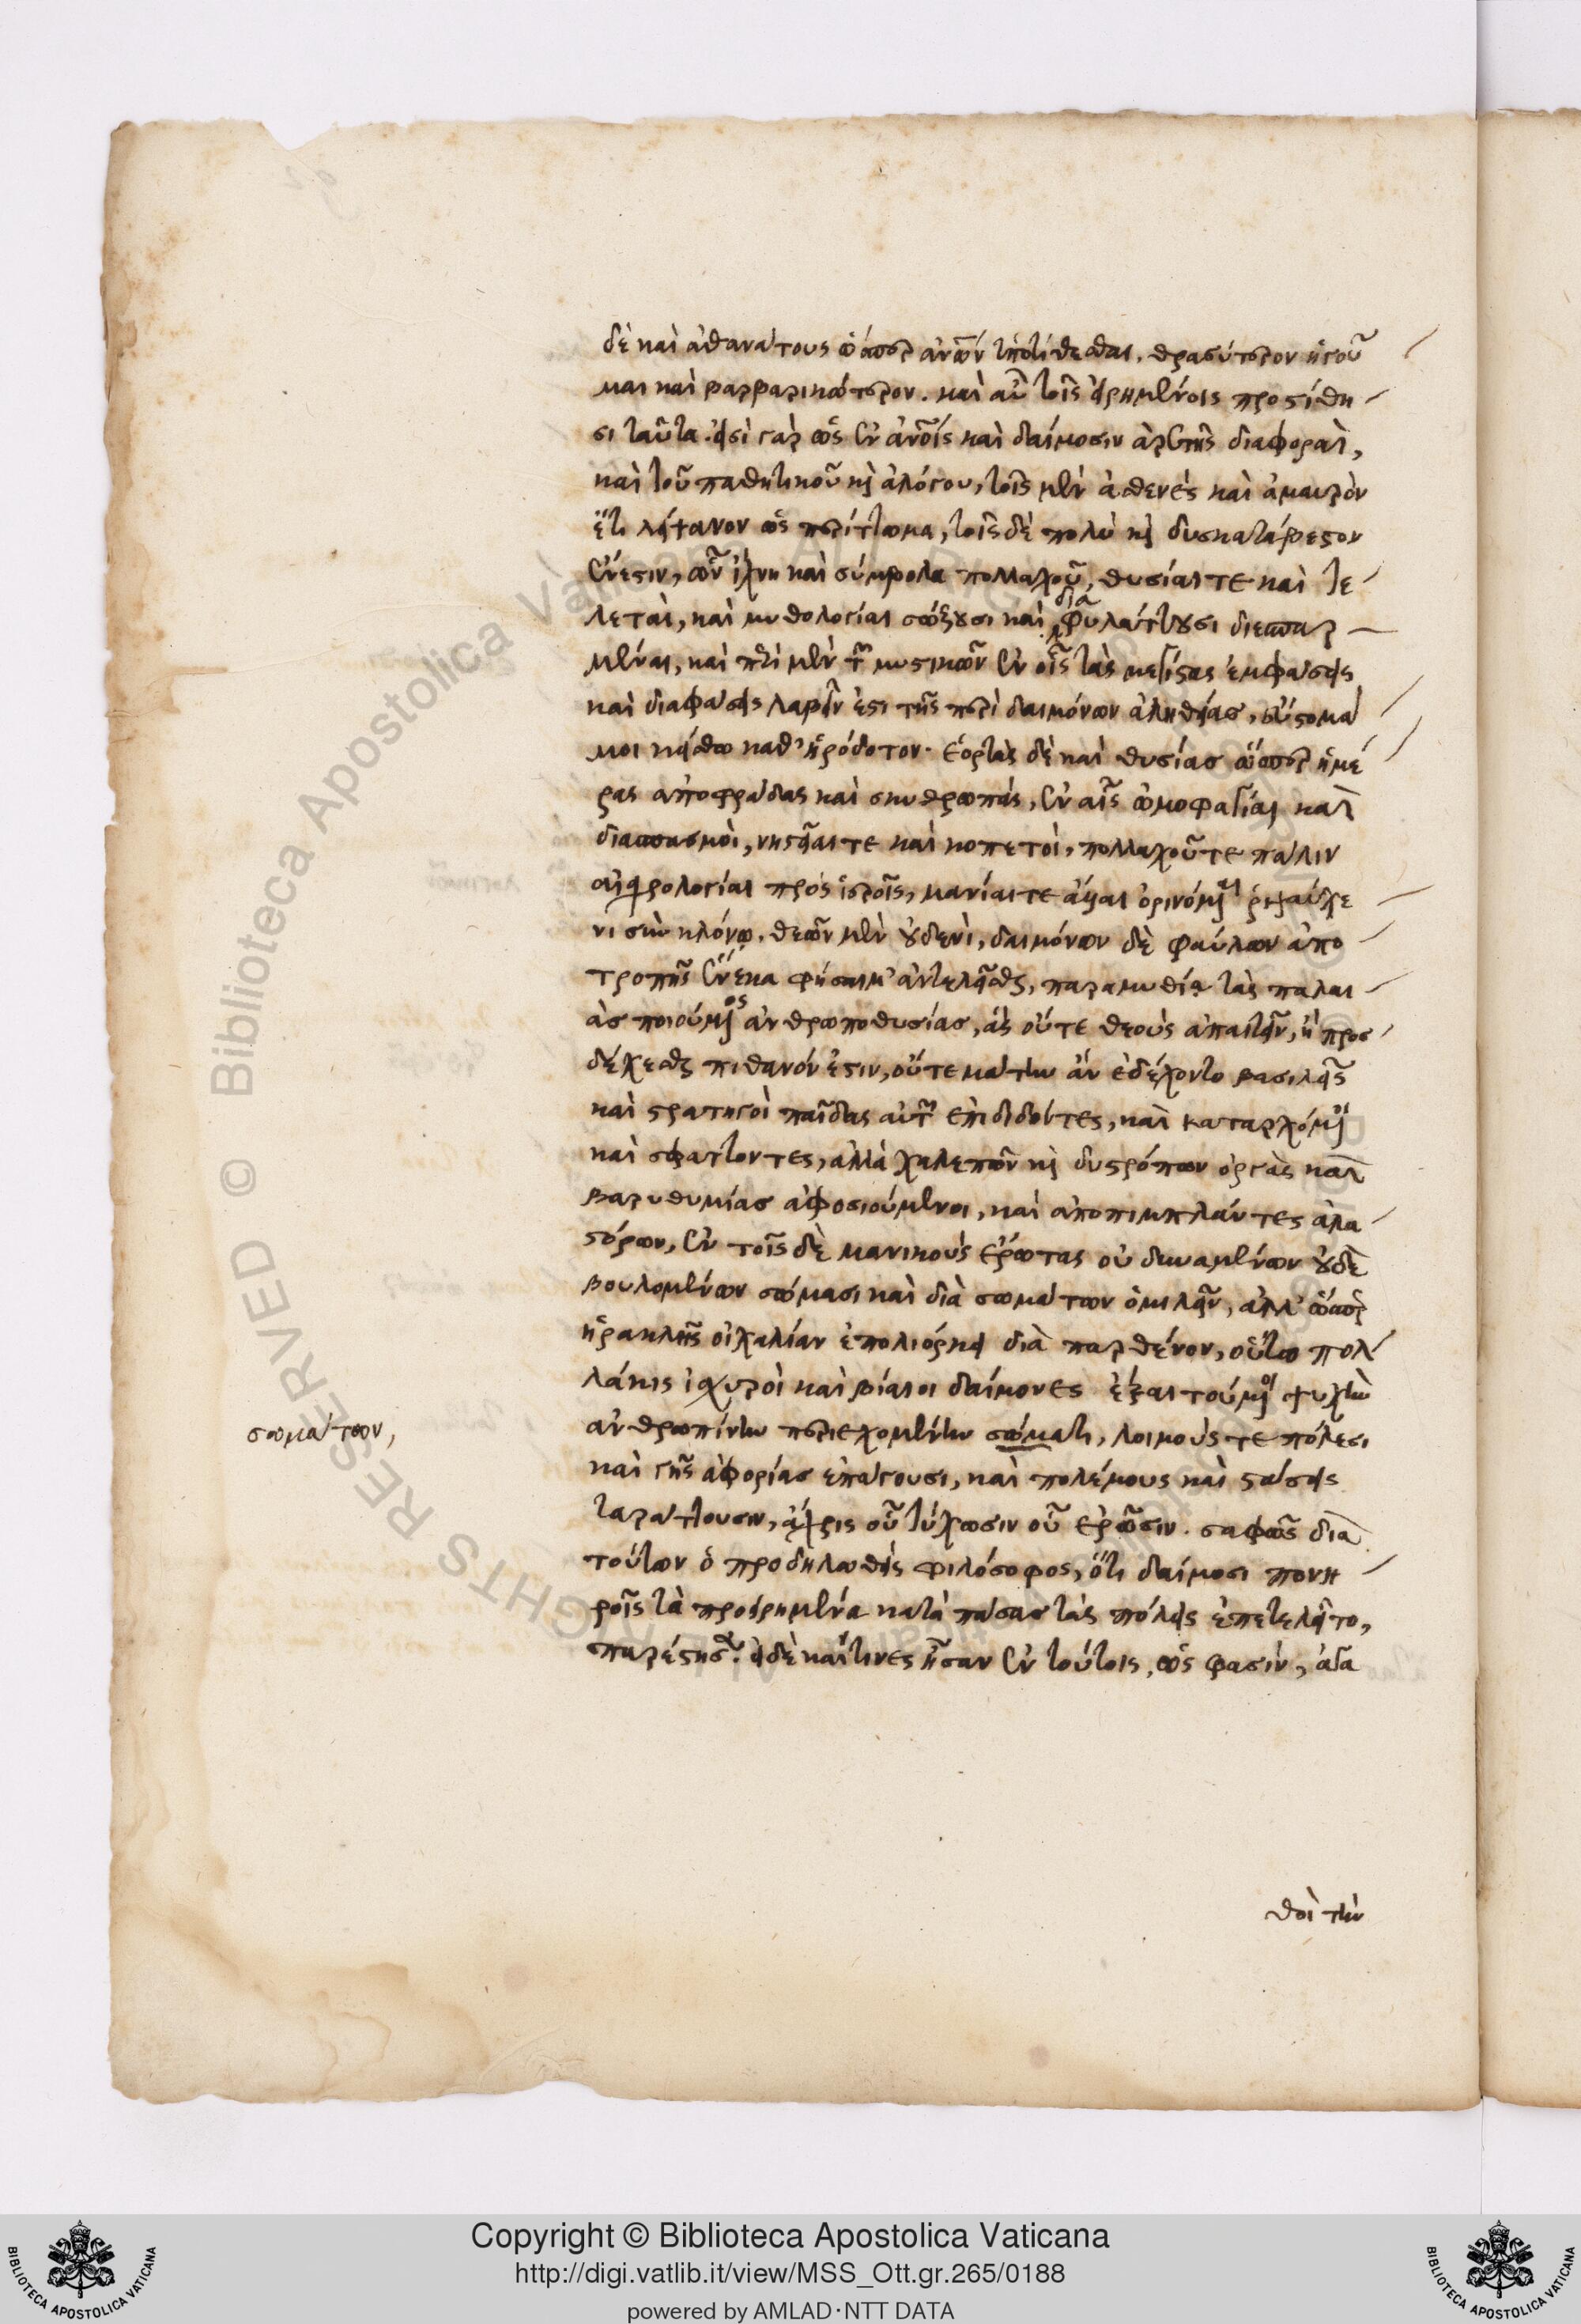 δὲ καὶ ἀθανάτους ὥσπερ ἀνων ὑποτίθεσθαι, θρασύτερον ἡγοῦ
μαι καὶ βαρβαρικώτερον. καὶ αὖ τοῖς εἰρημένοις προστίθη
σι ταῦτα. εἰσὶ γὰρ ὡς ἐν ἀνοις καὶ δαίμοσιν ἀρετῆς διαφοραὶ,
καὶ τοῦ παθητικοῦ καὶ ἀλόγου, τοῖς μὲν ἀσθενὲς καὶ ἀμαυρὸν
ἔτι λείψανον ὡς περίττωμα, τοῖς δὲ πολὺ καὶ δυσκατάσβεστον
ἔνεστιν, ὧν ἴχνη καὶ σύμβολα πολλαχοῦ, θυσίαι τε καὶ τε
λεταὶ, καὶ μυθολογίαι σώζουσι καὶ διαφυλάττουσι διεσπαρ
μέναι, καὶ περὶ μὲν τῶν μυστικῶν ἐν οἷς τὰς μεγίστας ἐμφάσεις
καὶ διαφάσεις λαβεῖν ἐστι τῆς περὶ δαιμόνων ἀληθείας, εὔστομά
μοι κείσθω καθ' ἡρόδοτον. ἑορτὰς δὲ καὶ θυσίας ὥσπερ ἡμέ
ρας ἀποφράδας καὶ σκυθρωπάς, ἐν αἷς ὠμοφαγίαι καὶ
διασπασμοὶ, νηστεῖαι τε καὶ κοπετοὶ, πολλαχοῦ τε πάλιν
αἰσχρολογίαι πρὸς ἱεροῖς, μανίαι τε ἄλλαι ὀρινόμεναι ῥιψαύχε
νι σὺν κλόνῳ, θεῶν μὲν οὐδενὶ, δαιμόνων δὲ φαύλων ἀπο
τροπῆς ἕνεκα φήσαιμ' ἂν τελεῖσθαι, παραμυθία τὰς παλαι
ὰς ποιούμενος ἀνθρωποθυσίας, ἃς οὔτε θεοὺς ἀπαιτεῖν, ἢ προσ
δέχεσθαι πιθανόν ἐστιν, οὔτε μάτην ἂν ἐδέχοντο βασιλεῖς
καὶ στρατηγοὶ παῖδας αὐτῶν ἐπιδιδόντες, καὶ καταρχόμενοι
καὶ σφάττοντες, ἀλλὰ χαλεπῶν καὶ δυστρόπων ὀργὰς καὶ
βαρυθυμίας ἀφοσιούμενοι, καὶ ἀποπιμπλάντες ἀλα
στόρων, ἐν τοῖς δὲ μανικοὺς ἔρωτας οὐ δυναμένων οὐδὲ
βουλομένων σώμασι καὶ διὰ σωμάτων ὁμιλεῖν, ἀλλ' ὥσπερ
ἡρακλῆς οἰχαλίαν ἐπολιόρκει διὰ παρθένον, οὕτω πολ
λάκις ἰσχυροὶ καὶ βίαιοι δαίμονες ἐξαιτούμενοι ψυχὴν
ἀνθρωπίνην περιεχομένην σώματι, λοιμούς τε πόλεσι
σωμάτων,
καὶ γῆς ἀφορίας ἐπάγουσι, καὶ πολέμους καὶ στάσεις
ταράττουσιν, ἄχρις οὗ τύχωσιν οὗ ἐρῶσιν. σαφῶς διὰ
τούτων ὁ προδηλωθεὶς φιλόσοφος, ὅτι δαίμοσι πονη
ροῖς τὰ προειρημένα κατὰ πάσας τὰς πόλεις ἐπετελεῖτο,
παρέστησεν. εἰ δὲ καί τινες ἦσαν ἐν τούτοις, ὥς φασιν, ἀγα
θοὶ τὴν
Copyright © Biblioteca Apostolica Vaticana
http://digi.vatlib.it/view/MSS_Ott.gr.265/0188
powered by AMLAD·NTT DATA